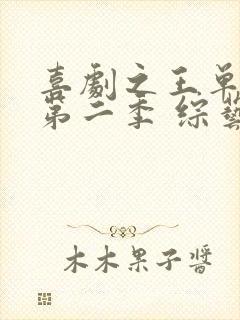 喜劇之王單
第二季 綜藝
木木果子醬